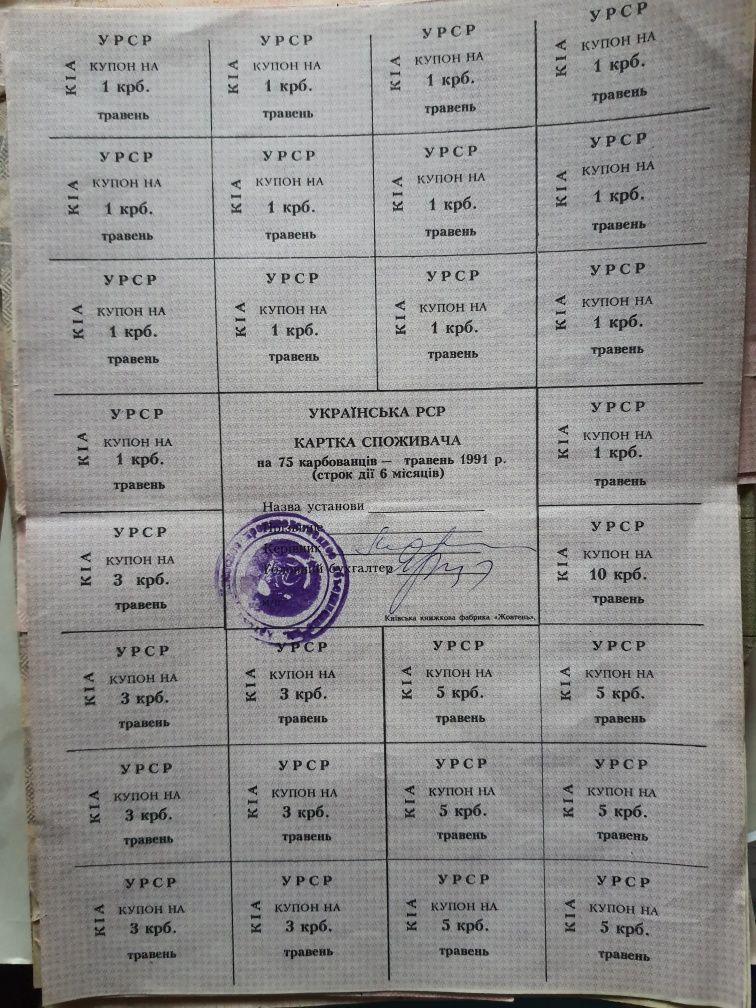 УРСР
КІА
КУПОН НА
1 крб.
травень
УРСР
КІА
КУПОН НА
1 крб.
травень
УРСР
КІА
КУПОН НА
1 крб.
травень
УРСР
КІА
КУПОН НА
1 крб.
травень
УРСР
КІА
КУПОН НА
1 крб.
травень
УРСР
КІА
КУПОН НА
1 крб.
травень
УРСР
КІА
КУПОН НА
1 крб.
травень
УРСР
КІА
КУПОН НА
1 крб.
травень
УРСР
КІА
КУПОН НА
1 крб.
травень
УРСР
КІА
КУПОН НА
1 крб.
травень
УРСР
КІА
КУПОН НА
1 крб.
травень
УРСР
КІА
КУПОН НА
1 крб.
травень
УРСР
КІА
КУПОН НА
1 крб.
травень
УКРАЇНСЬКА РСР
КАРТКА СПОЖИВАЧА
на 75 карбованців — травень 1991 р.
(строк дії 6 місяців)
Назва установи
Прізвище
Керівник
Головний бухгалтер
Київська книжкова фабрика «Жовтень».
УРСР
КІА
КУПОН НА
1 крб.
травень
УРСР
КІА
КУПОН НА
3 крб.
травень
УРСР
КІА
КУПОН НА
10 крб.
травень
УРСР
КІА
КУПОН НА
3 крб.
травень
УРСР
КІА
КУПОН НА
3 крб.
травень
УРСР
КІА
КУПОН НА
5 крб.
травень
УРСР
КІА
КУПОН НА
5 крб.
травень
УРСР
КІА
КУПОН НА
3 крб.
травень
УРСР
КІА
КУПОН НА
3 крб.
травень
УРСР
КІА
КУПОН НА
5 крб.
травень
УРСР
КІА
КУПОН НА
5 крб.
травень
УРСР
КІА
КУПОН НА
3 крб.
травень
УРСР
КІА
КУПОН НА
3 крб.
травень
УРСР
КІА
КУПОН НА
5 крб.
травень
УРСР
КІА
КУПОН НА
5 крб.
травень